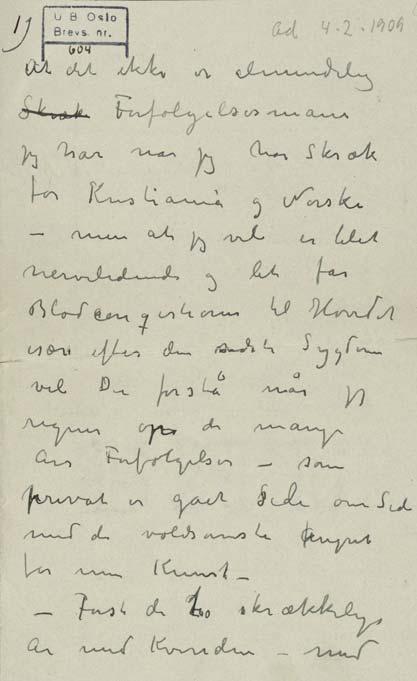 1)
U B Oslo
Brevs. nr.
604
ad 4-2-1909
At det ikke er almindelig
Skræk Forfølgelsesmani
jeg har når jeg har Skræk
for Kristiania og Norske
– men at jeg vel er blet
nervelidende og let får
Blodcongestioner til Hovedet
især efter den sidste Sygdom
vil De forstå når jeg
regner op de mange
Års Forfølgelser – som
privat er gået Side om Sid
med de voldsomste Angreb
for min Kunst –
– Først de to skrækkelige
År med Kvinden – med